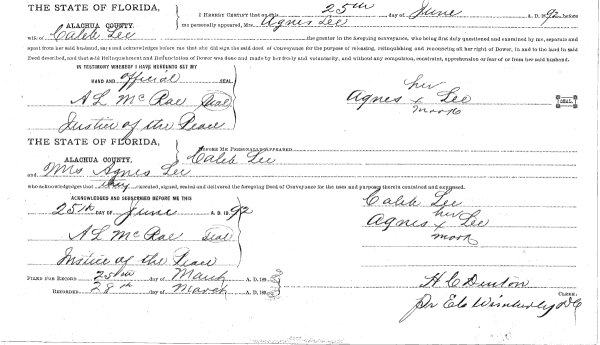 THE STATE OF FLORIDA, I HEREBY CERTIFY that on this 25th day of June A. D. 1892 before
ALACHUA COUNTY. me personally appeared, Mrs. Agnes Lee
wife of Caleb Lee the grantor in the foregoing conveyance, who being first duly questioned and examined by me, separate and
apart from her said husband, says and acknowledges before me that she did sign the said deed of Conveyance for the purpose of releasing, relinquishing and renouncing all her right of Dower, in and to the land in said
Deed described, and that said Relinquishment and Renunciation of Dower was done and made by her freely and voluntarily, and without any compulsion, constraint, apprehension or fear of or from her said husband.
IN TESTIMONY WHEREOF I HAVE HEREUNTO SET MY
HAND AND official SEAL
her
A L McRae Seal Agnes x Lee SEAL.
mark
Justice of the Peace
THE STATE OF FLORIDA, BEFORE ME PERSONALLY APPEARED
ALACHUA COUNTY. Caleb Lee
and Mrs Agnes Lee
who acknowledges that they executed, signed, sealed and delivered the foregoing Deed of Conveyance for the uses and purposes therein contained and expressed.
ACKNOWLEDGED AND SUBSCRIBED BEFORE ME THIS Caleb Lee
25th DAY OF June A. D. 1892
her
Agnes x Lee
mark
A L McRae Seal
Justice of the Peace
FILED FOR RECORD 25th day of March A. D. 189
RECORDED 28th day of March A. D. 189
H C Denton CLERK.
Pr E C Wimberly DC